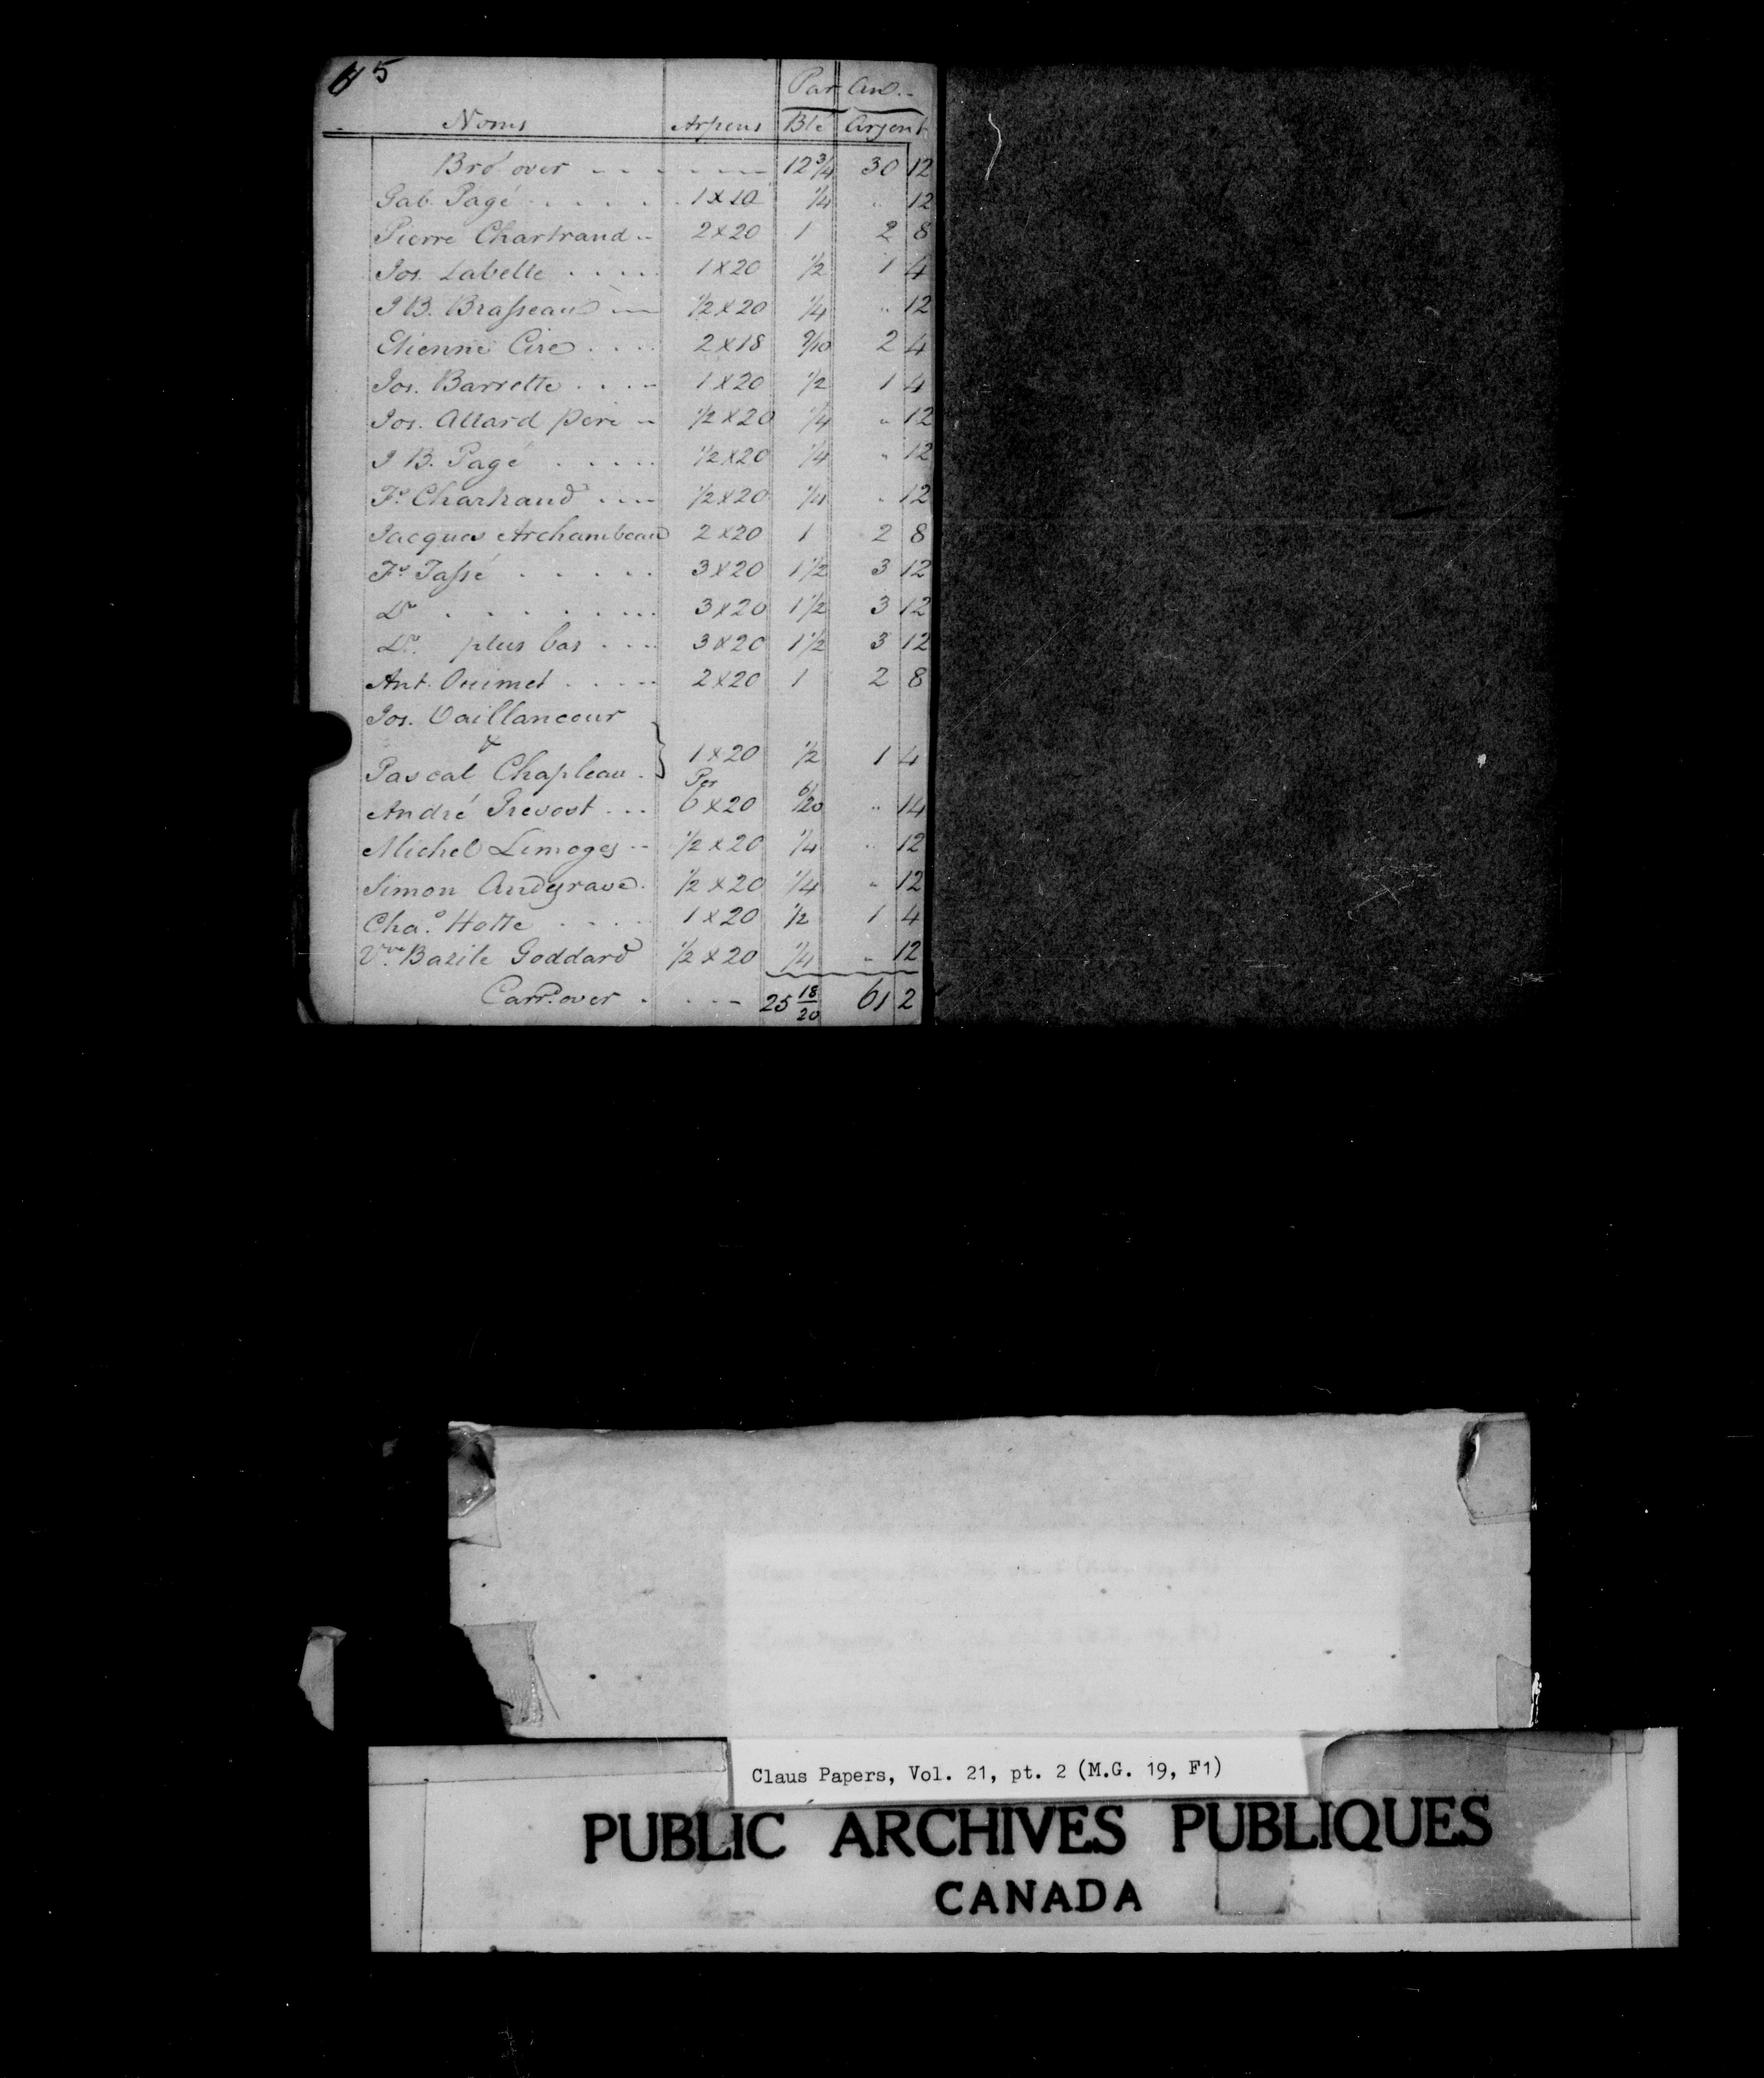 65
Par An.
Noms Arpens Blé Argent
Bro' over 12 3/4 30 12
Gab. Pagé 1 x 10 1/4 " 12
Pierre Chartrand 2 x 20 1 2 8
Jos. Labelle 1 x 20 1/2 1 4
J B. Brasseau 1/2 x 20 1/4 " 12
Etienne Cire 2 x 18 9/10 2 4
Jos. Barrette 1 x 20 1/2 1 4
Jos. Allard pere 1/2 x 20 1/4 " 12
J B. Pagé 1/2 x 20 1/4 " 12
Fs. Chartrand 1/2 x 20 1/4 " 12
Jacques Archambeau 2 x 20 1 2 8
Fs. Tassé 3 x 20 1 1/2 3 12
Do 3 x 20 1 1/2 3 12
Do. plus bas 3 x 20 1 1/2 3 12
Ant. Ouimet 2 x 20 1 2 8
Jos. Vaillancour
&
Pascal Chapleau } 1 x 20 1/2 1 4
Per
André Prevost 6 x 20 6/20 " 14
Michel Limoges 1/2 x 20 1/4 " 12
Simon Andgrave 1/2 x 20 1/4 " 12
Chas. Hotte 1 x 20 1/2 1 4
Vve. Bazile Goddard 1/2 x 20 1/4 " 12
Carrd. over 25 18/20 61 2
Claus Papers, Vol. 21, pt. 2 (M.G. 19, F1)
PUBLIC ARCHIVES PUBLIQUES
CANADA